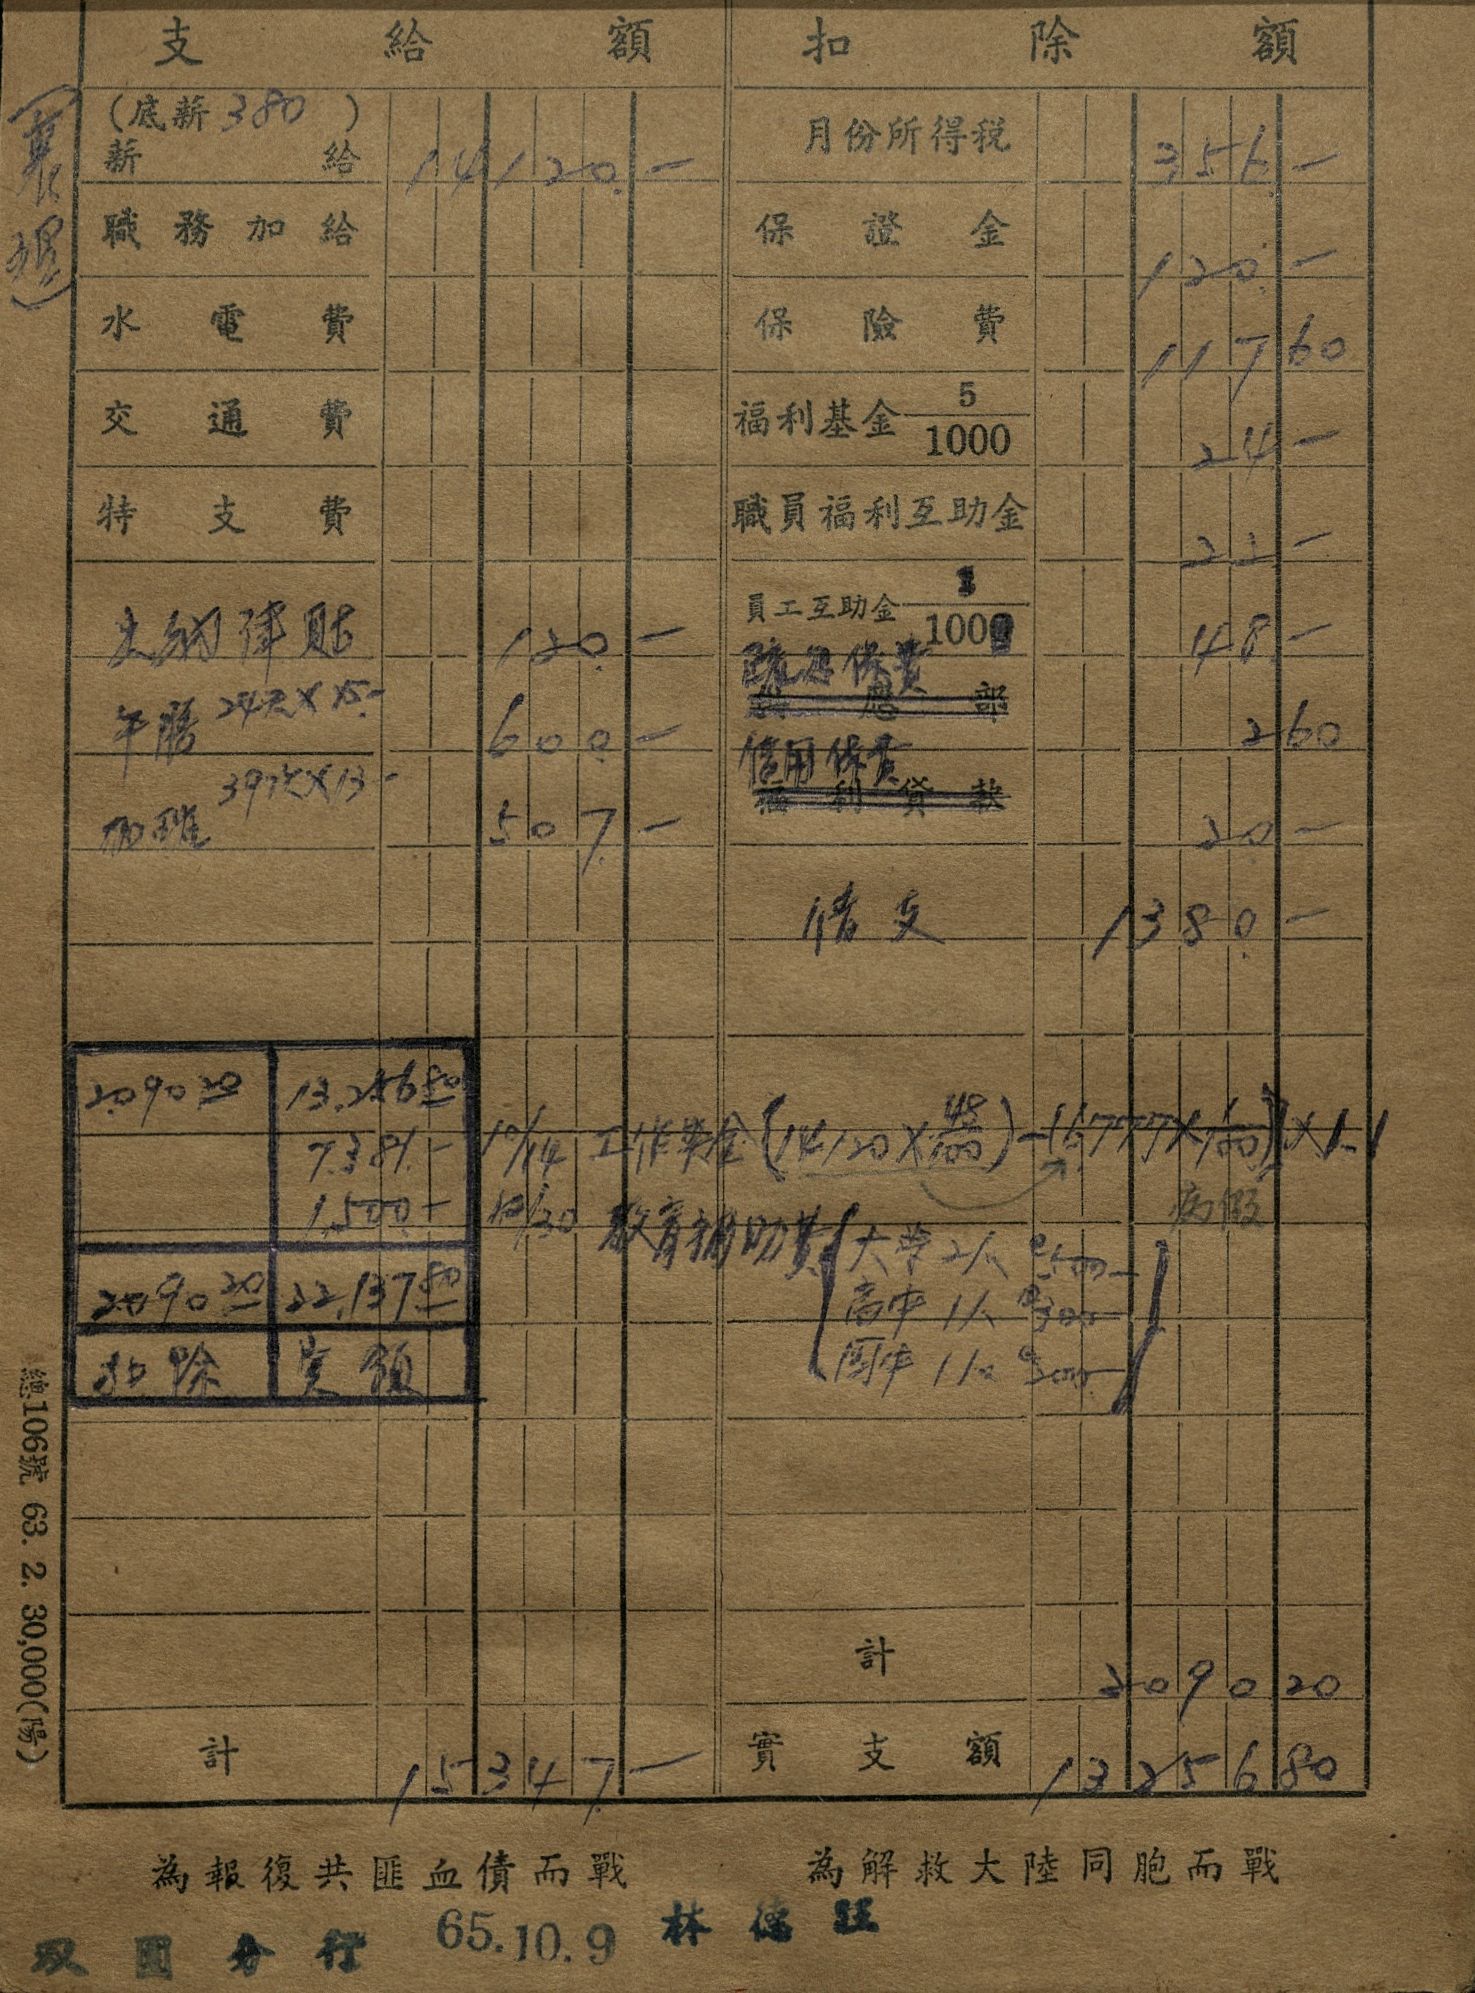 支給額
扣除額
(底薪380)
薪給 14120.—
職務加給
水電費
交通費
特支費
津貼 120.—
午膳 24天×15.— 600.—
39次×13— 507.—
計 15347.—
月份所得稅 356.—
保證金 120.—
保險費 117 60
福利基金 5/1000 24.—
職員福利互助金
員工互助金 1000 48.—
保費 2 60
部
信用保費 20.—
福利貸款
借支 1380.—
2090 20 13,256 80
7,381.— 10/14 工作獎金(14120×48/100)—16777×1/100)×1.1
病假
1,500.— 10/30 教育補助費
大學2人@500—
高中1人@300—
國中1人@
2090 20 22,137 80
扣除 实額
計 2090 20
實支額 13256 80
總106號 63. 2. 30,000(陽)
為報復共匪血債而戰
為解救大陸同胞而戰
双園分行 65.10.9 林德旺